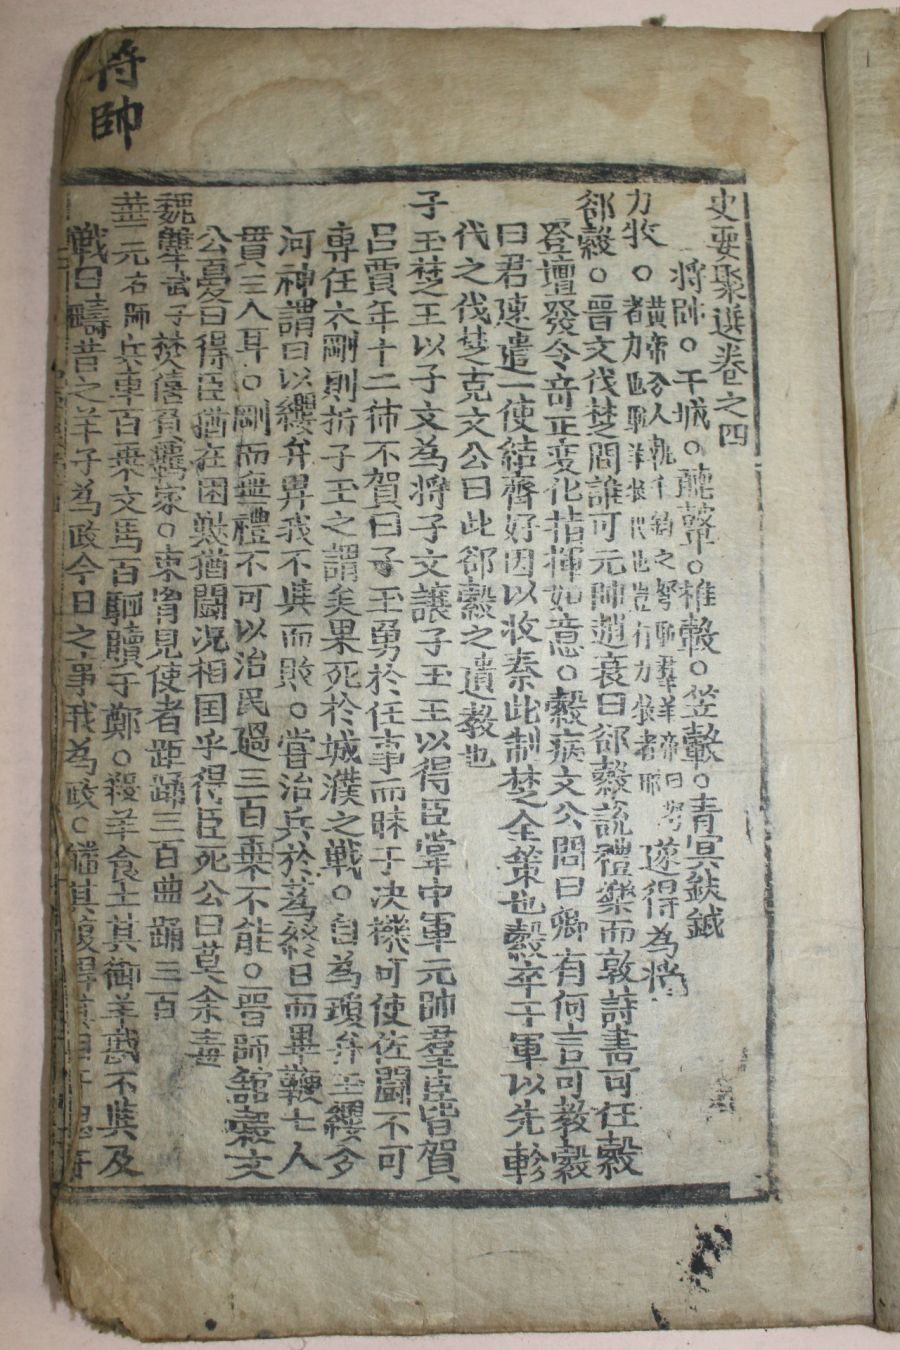 將帥
史要聚選卷之四
將帥○干城○龍韜○推轂○笠轂○青冥鈇鉞
力牧○黃帝夢人執千鈞之弩駈羣羊帝曰弩
者力也駈羊牧民也豈有力牧者耶遂得為將
郤縠○晉文伐楚問誰可元帥趙衰曰郤縠說禮樂而敦詩書可任縠
登壇發令奇正変化指揮如意○縠疾文公問曰卿有何言可教縠
曰君速遣一使結齊好因以收秦此制楚全策也縠卒于軍以先軫
代之伐楚克文公曰此郤縠之遺教也
子玉楚王以子文為將子文讓子玉王以得臣掌中軍元帥羣臣皆賀
呂賈年十二㳈不賀曰子玉勇於任事而昧于决機可使佐鬪不可
専任太剛則折子玉之謂矣果死於城濮之戦○自為瓊弁玉纓夢
河神謂曰以纓弁畀我不與而敗○甞治兵於蒍終日而畢鞭七人
貫三人耳○剛而無禮不可以治民過三百乗不能○晋師舘糓文
公憂曰得臣猶在困獸猶鬪况相国乎得臣死公曰莫余毒
魏犨武子焚僖負羈家○束胷見使者距踊三百曲踊三百
華元右師兵車百乗文馬百駟贖于鄭○殺羊食士其御羊斟不與及
戦曰疇昔之羊子為政今日之事我為政